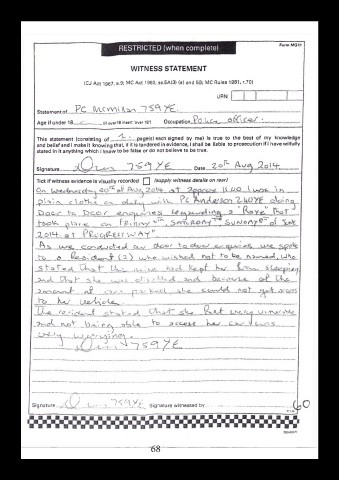 RESTRICTED (when complete)
Form MG11
WITNESS STATEMENT
(CJ Act 1967, s.9; MC Act 1980, ss.5A(3) (a) and 5B; MC Rules 1981, r.70)
URN
Statement of PC McMillan 759YE
Age if under 18 (if over 18 insert 'over 18') Occupation Police officer.
This statement (consisting of 1 page(s) each signed by me) is true to the best of my knowledge
and belief and I make it knowing that, if it is tendered in evidence, I shall be liable to prosecution if I have wilfully
stated in it anything which I know to be false or do not believe to be true.
Signature 759YE Date 20th Aug 2014
Tick if witness evidence is visually recorded (supply witness details on rear)
On Wednesday 20th of Aug 2014 at approx 1640 I was in
plain clothes on duty with PC Anderson 240YE doing
Door to Door enquiries regarding a "Rave" that
took place on Friday 6th Saturday 7th Sunday 8th of June
2014 at "PROGRESS WAY"
As we conducted our door to door enquiries we spoke
to a Resident (2) who wished not to be named, who
stated that the noise had kept her from sleeping
and that she was disabled and because of the
amount of cars parked she could not get access
to her vehicle.
The resident stated that she felt very vulnerable
and not being able to access her car was
very worrying.
759YE
Signature 759YE Signature witnessed by
60
68